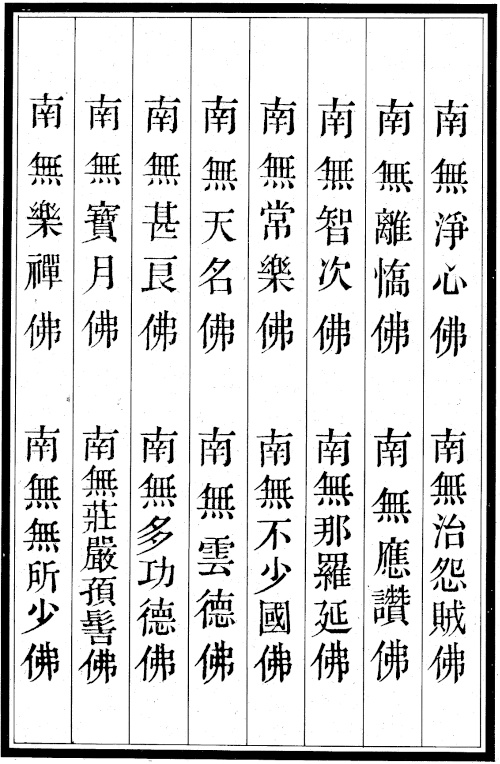 南無淨心佛　南無治怨賊佛
南無離憍佛　南無應讚佛
南無智次佛　南無那羅延佛
南無常樂佛　南無不少國佛
南無天名佛　南無雲德佛
南無甚良佛　南無多功德佛
南無寶月佛　南無莊嚴頂髻佛
南無樂禪佛　南無無所少佛